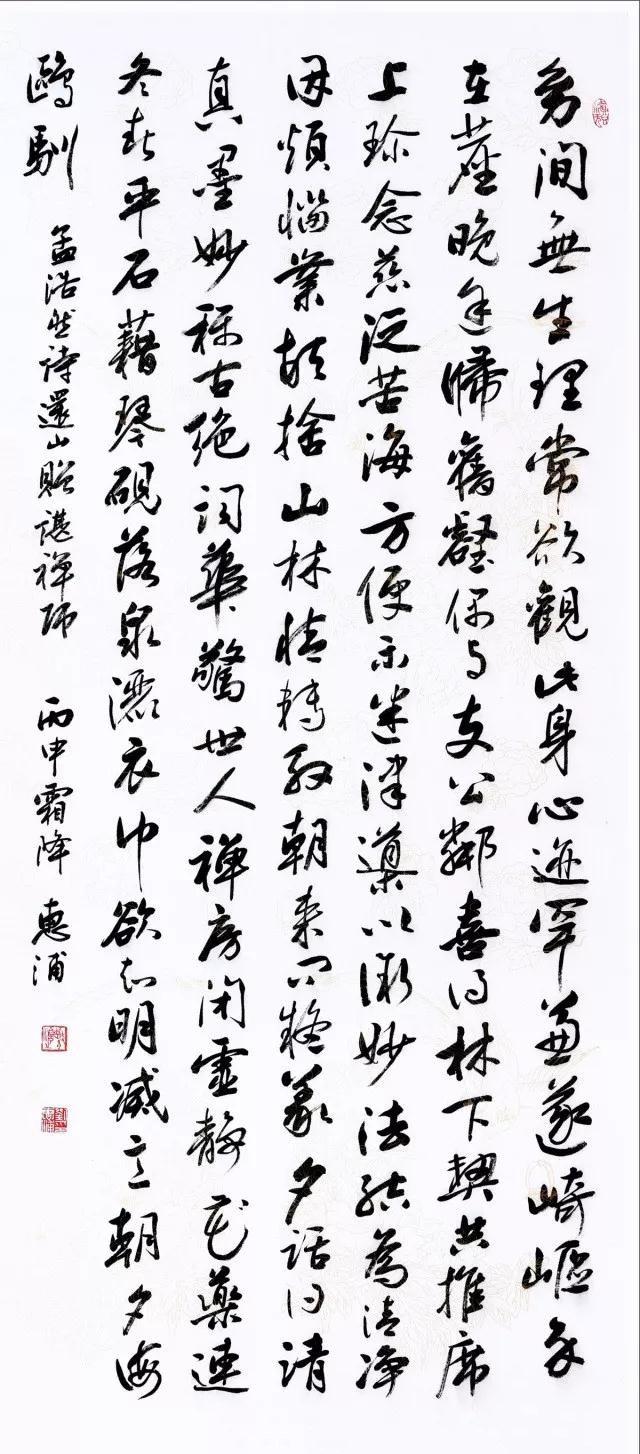 幼聞無生理常欲觀此身心迹罕兼遂崎嶇多
在塵晚途歸舊壑偶与支公鄰喜得林下契共推席
上珍念慈泛苦海方便示迷津導以微妙法結為清净
因煩惱業頓捨山林情轉殷朝来問疑義夕話得清
真墨妙称古绝词華驚世人禅房閉虚静花藥連
冬春平石藉琴硯落泉灑衣巾欲知明滅意朝夕海
鷗馴 孟浩然詩還山贈諶禅師 丙申霜降 惠浦